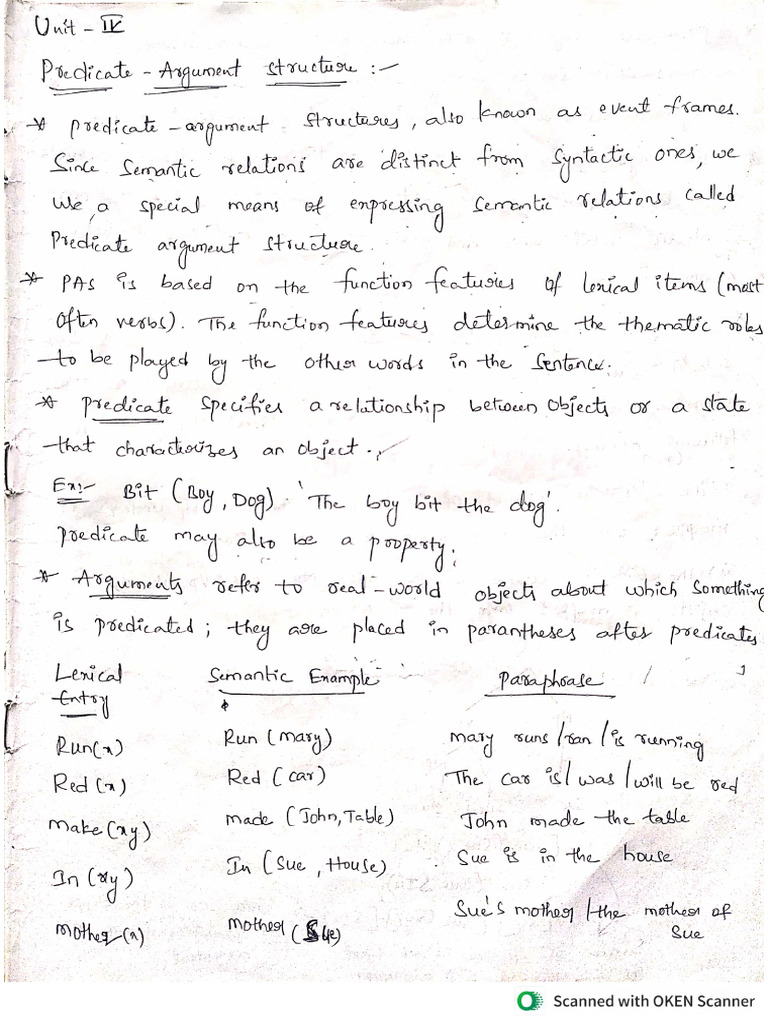 Unit - IV
Predicate - Argument structure :-
* predicate - argument structures, also known as event frames.
Since Semantic relations are distinct from syntactic ones, we
we a special means of expressing semantic relations called
Predicate argument structure.
* PAS is based on the function features of lexical items (most
Often verbs). The function features determine the thematic roles
to be played by the other words in the sentence.
* Predicate specifies a relationship between objects or a state
that characterizes an object.
Ex:- Bit (Boy, Dog). 'The boy bit the dog'.
predicate may also be a property.
* Arguments refer to real-world objects about which something
is predicated; they are placed in parantheses after predicates
Lexical Entry Semantic Example Paraphrase
Run(x) Run (mary) mary runs/ran/is running
Red (x) Red (car) The car is/was/will be red
Make (xy) made (John, Table) John made the table
In (xy) In (Sue, House) Sue is in the house
mother (x) Mother (Sue) Sue's mother/the mother of Sue
Scanned with OKEN Scanner